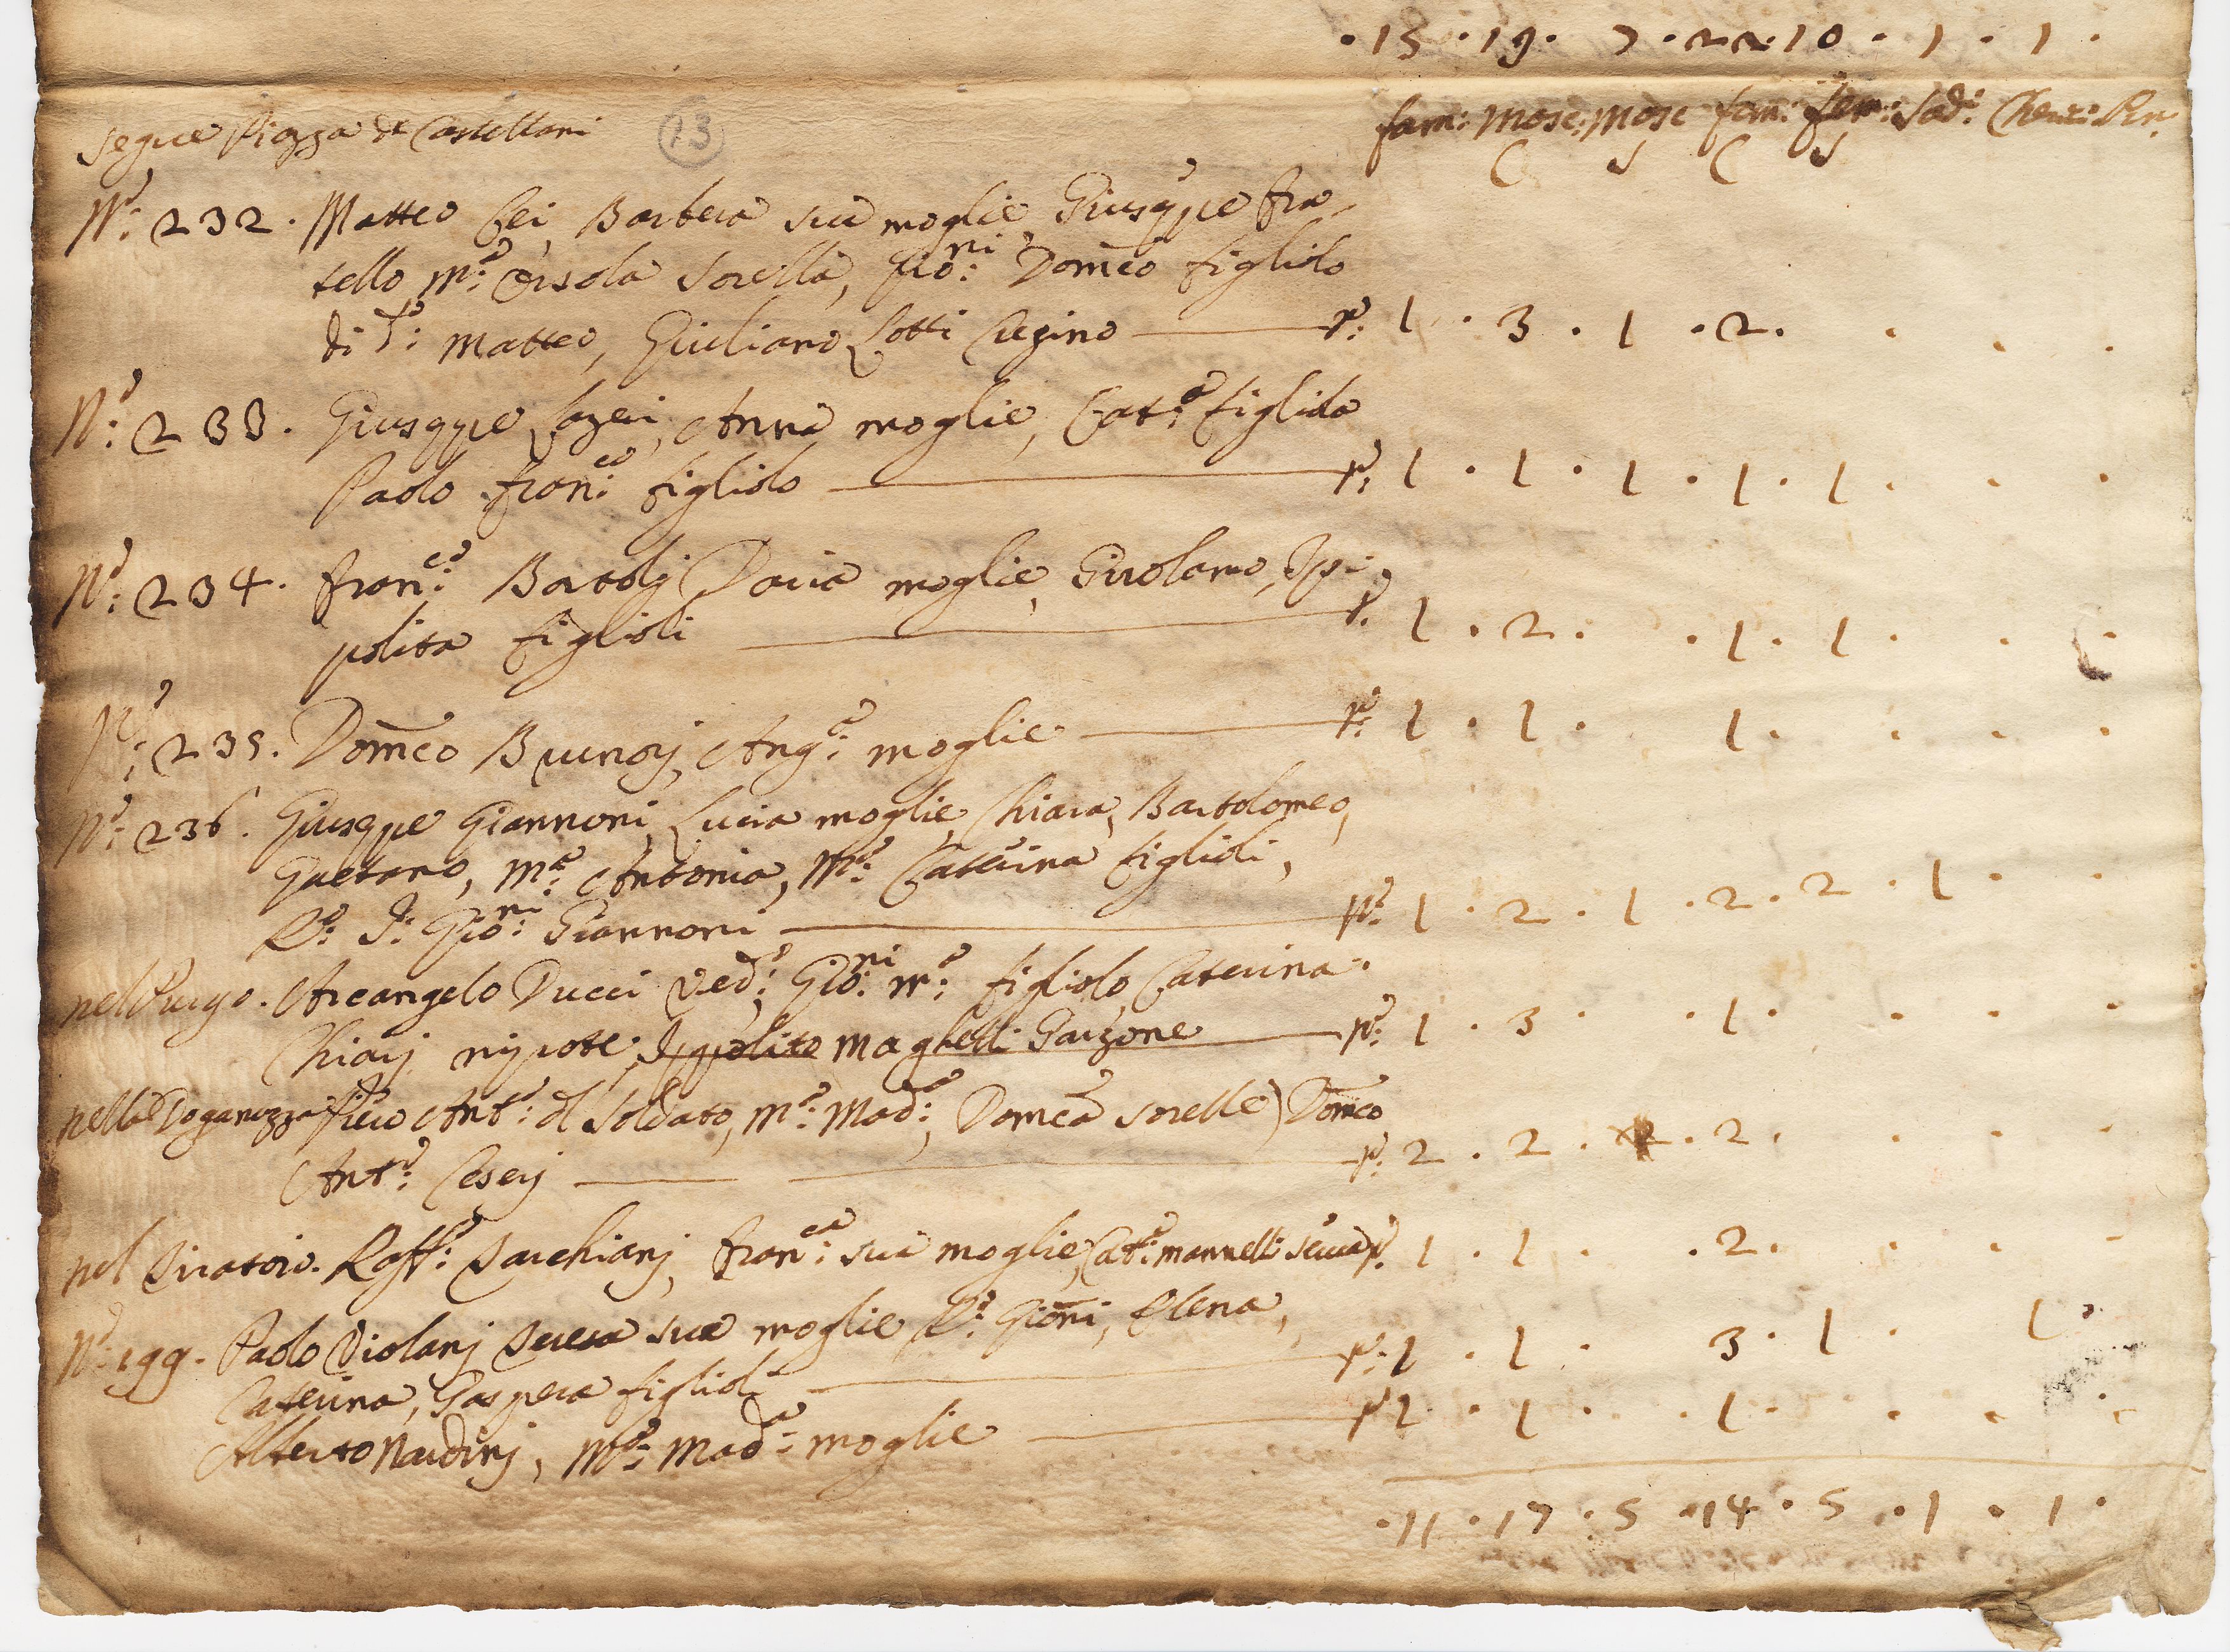 . 15 . 19 . 7 . 22 . 10 . 1 . 1 .
segue Piazza de Castellani 13 fam: Masc: Masc fem: fem: Sad: Cheric: Re:
C S C S
No: 232. Matteo Fei, Barbera sua moglie, Giuseppe fra-
tello, Ma: Orsola sorella, Gio:ni Domco figliolo
di do: Matteo, Giuliano Lotti Cugino — no: 1 . 3 . 1 . 2 . . . .
No: 233. Giuseppe Lazeri, Anna moglie, Cat:a figliola
Paolo Fran:co figliolo — no: 1 . 1 . 1 . 1 . 1 . . .
No: 234. Fran:co Bartolj Daria moglie, Girolamo, Ipi-
polita figlioli — no: 1 . 2 . . 1 . 1 . . .
No: 235. Domco Buonoj, Ang:a moglie — no: 1 . 1 . 1 . . . .
No: 236. Giuseppe Giannoni, Lucia moglie, Chiara, Bartolomeo,
Gaetano, Ma: Antonia, Ma: Caterina figlioli,
Ro: d: Gio:ni Giannoni — no: 1 . 2 . 1 . 2 . 2 . 1 . .
nel Purgo. Arcangelo Ducci ved:o, Gio:ni Ma: figliolo, Caterina
Chiarj nipote, Ippolito Maghelli Garzone — no: 1 . 3 . . 1 . . . .
nella Doganuzza Piero Ant:o del Soldato, Ma: Mad:a, Domca sorelle) Domco
Ant:o Ceserj — no: 2 . 2 . . 2 . . . .
nel Tiratoio. Raff:o Sarchianj, Fran:ca sua moglie, Cat:a Mannelli serva no: 1 . 1 . . 2 . . . .
No: 199. Paolo Violanj Teresa sua moglie Ro: Gioni, Elena,
Caterina, Gaspera figlioli — no: 1 . 1 . 3 . 1 . 1
Alberto Nardinj, Ma: Mad:a moglie — no 1 . 1 . . 1 . . . .
. 11 . 17 . 5 . 14 . 5 . 1 . 1 .